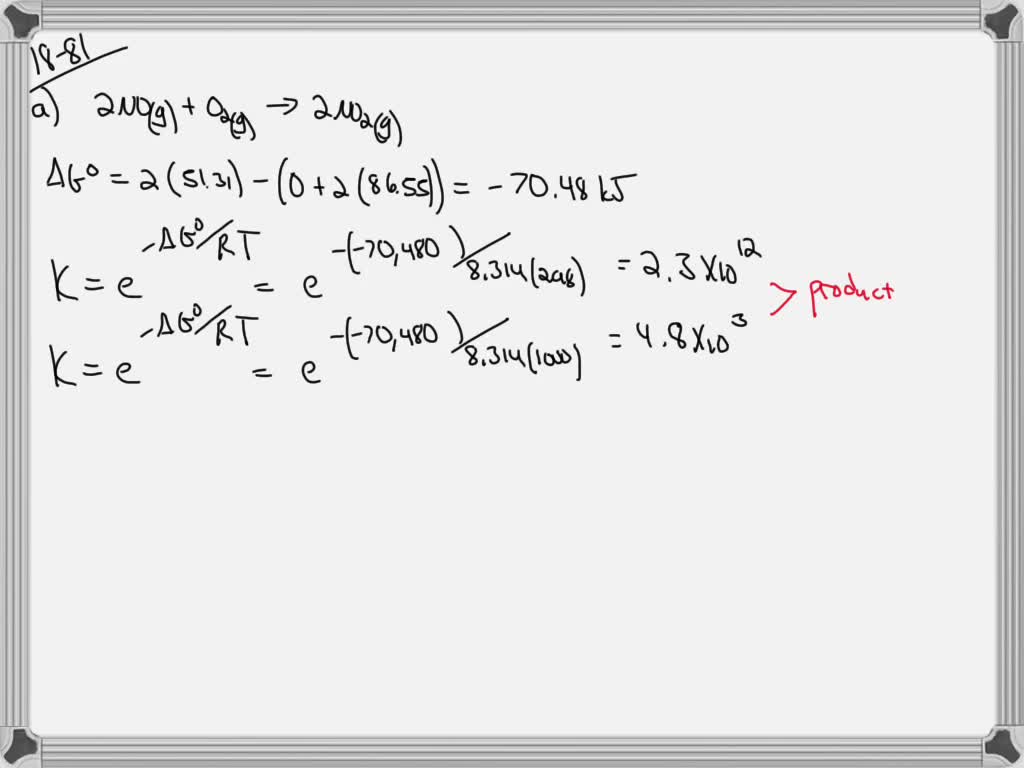 18-81
a) 2NO(g) + O₂(g) → 2NO₂(g)
ΔG° = 2(51.31) - (0 + 2(86.55)) = -70.48 kJ
K = e^(-ΔG°/RT) = e^(-(-70,480)/8.314(298)) = 2.3 x10^12
> product
K = e^(-ΔG°/RT) = e^(-(-70,480)/8.314(1000)) = 4.8 x10^3